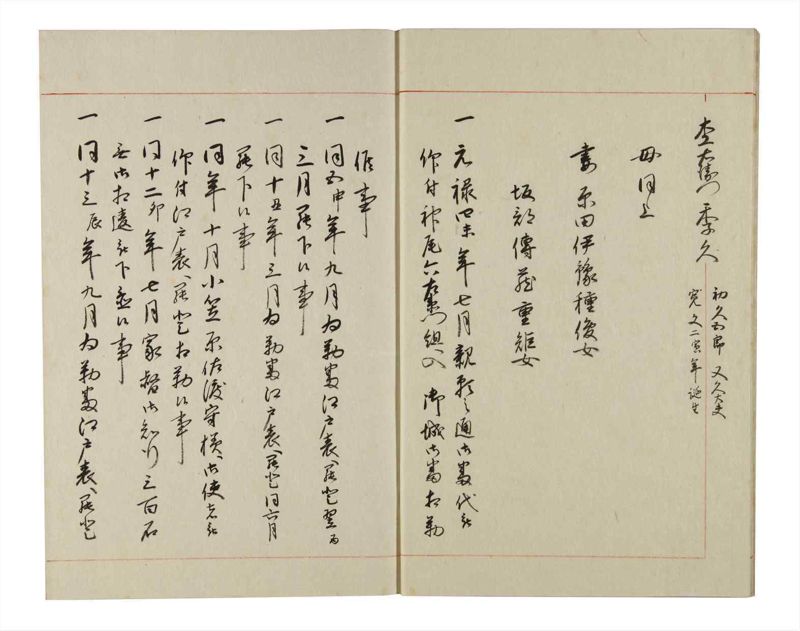 杢左衛門 季久
初久五郎 又久太夫
寛文二寅年誕生
母同上
妻 原田伊豫種俊女
坂部傳蔵重矩女
一 元禄四未年七月親頼之通御番代被
仰付神尾六左衛門組入 御城御番相勤
候事
一 同五申年九月為勤番江戸表へ罷登翌酉
三月罷下候事
一 同十丑年三月為勤番江戸表へ罷登同六月
罷下候事
一 同年十月小笠原佐渡守様へ御使者被
仰付江戸表へ罷登相勤候事
一 同十二卯年七月家督御知行三百石
無御相違被下置候事
一 同十三辰年九月為勤番江戸表へ罷登